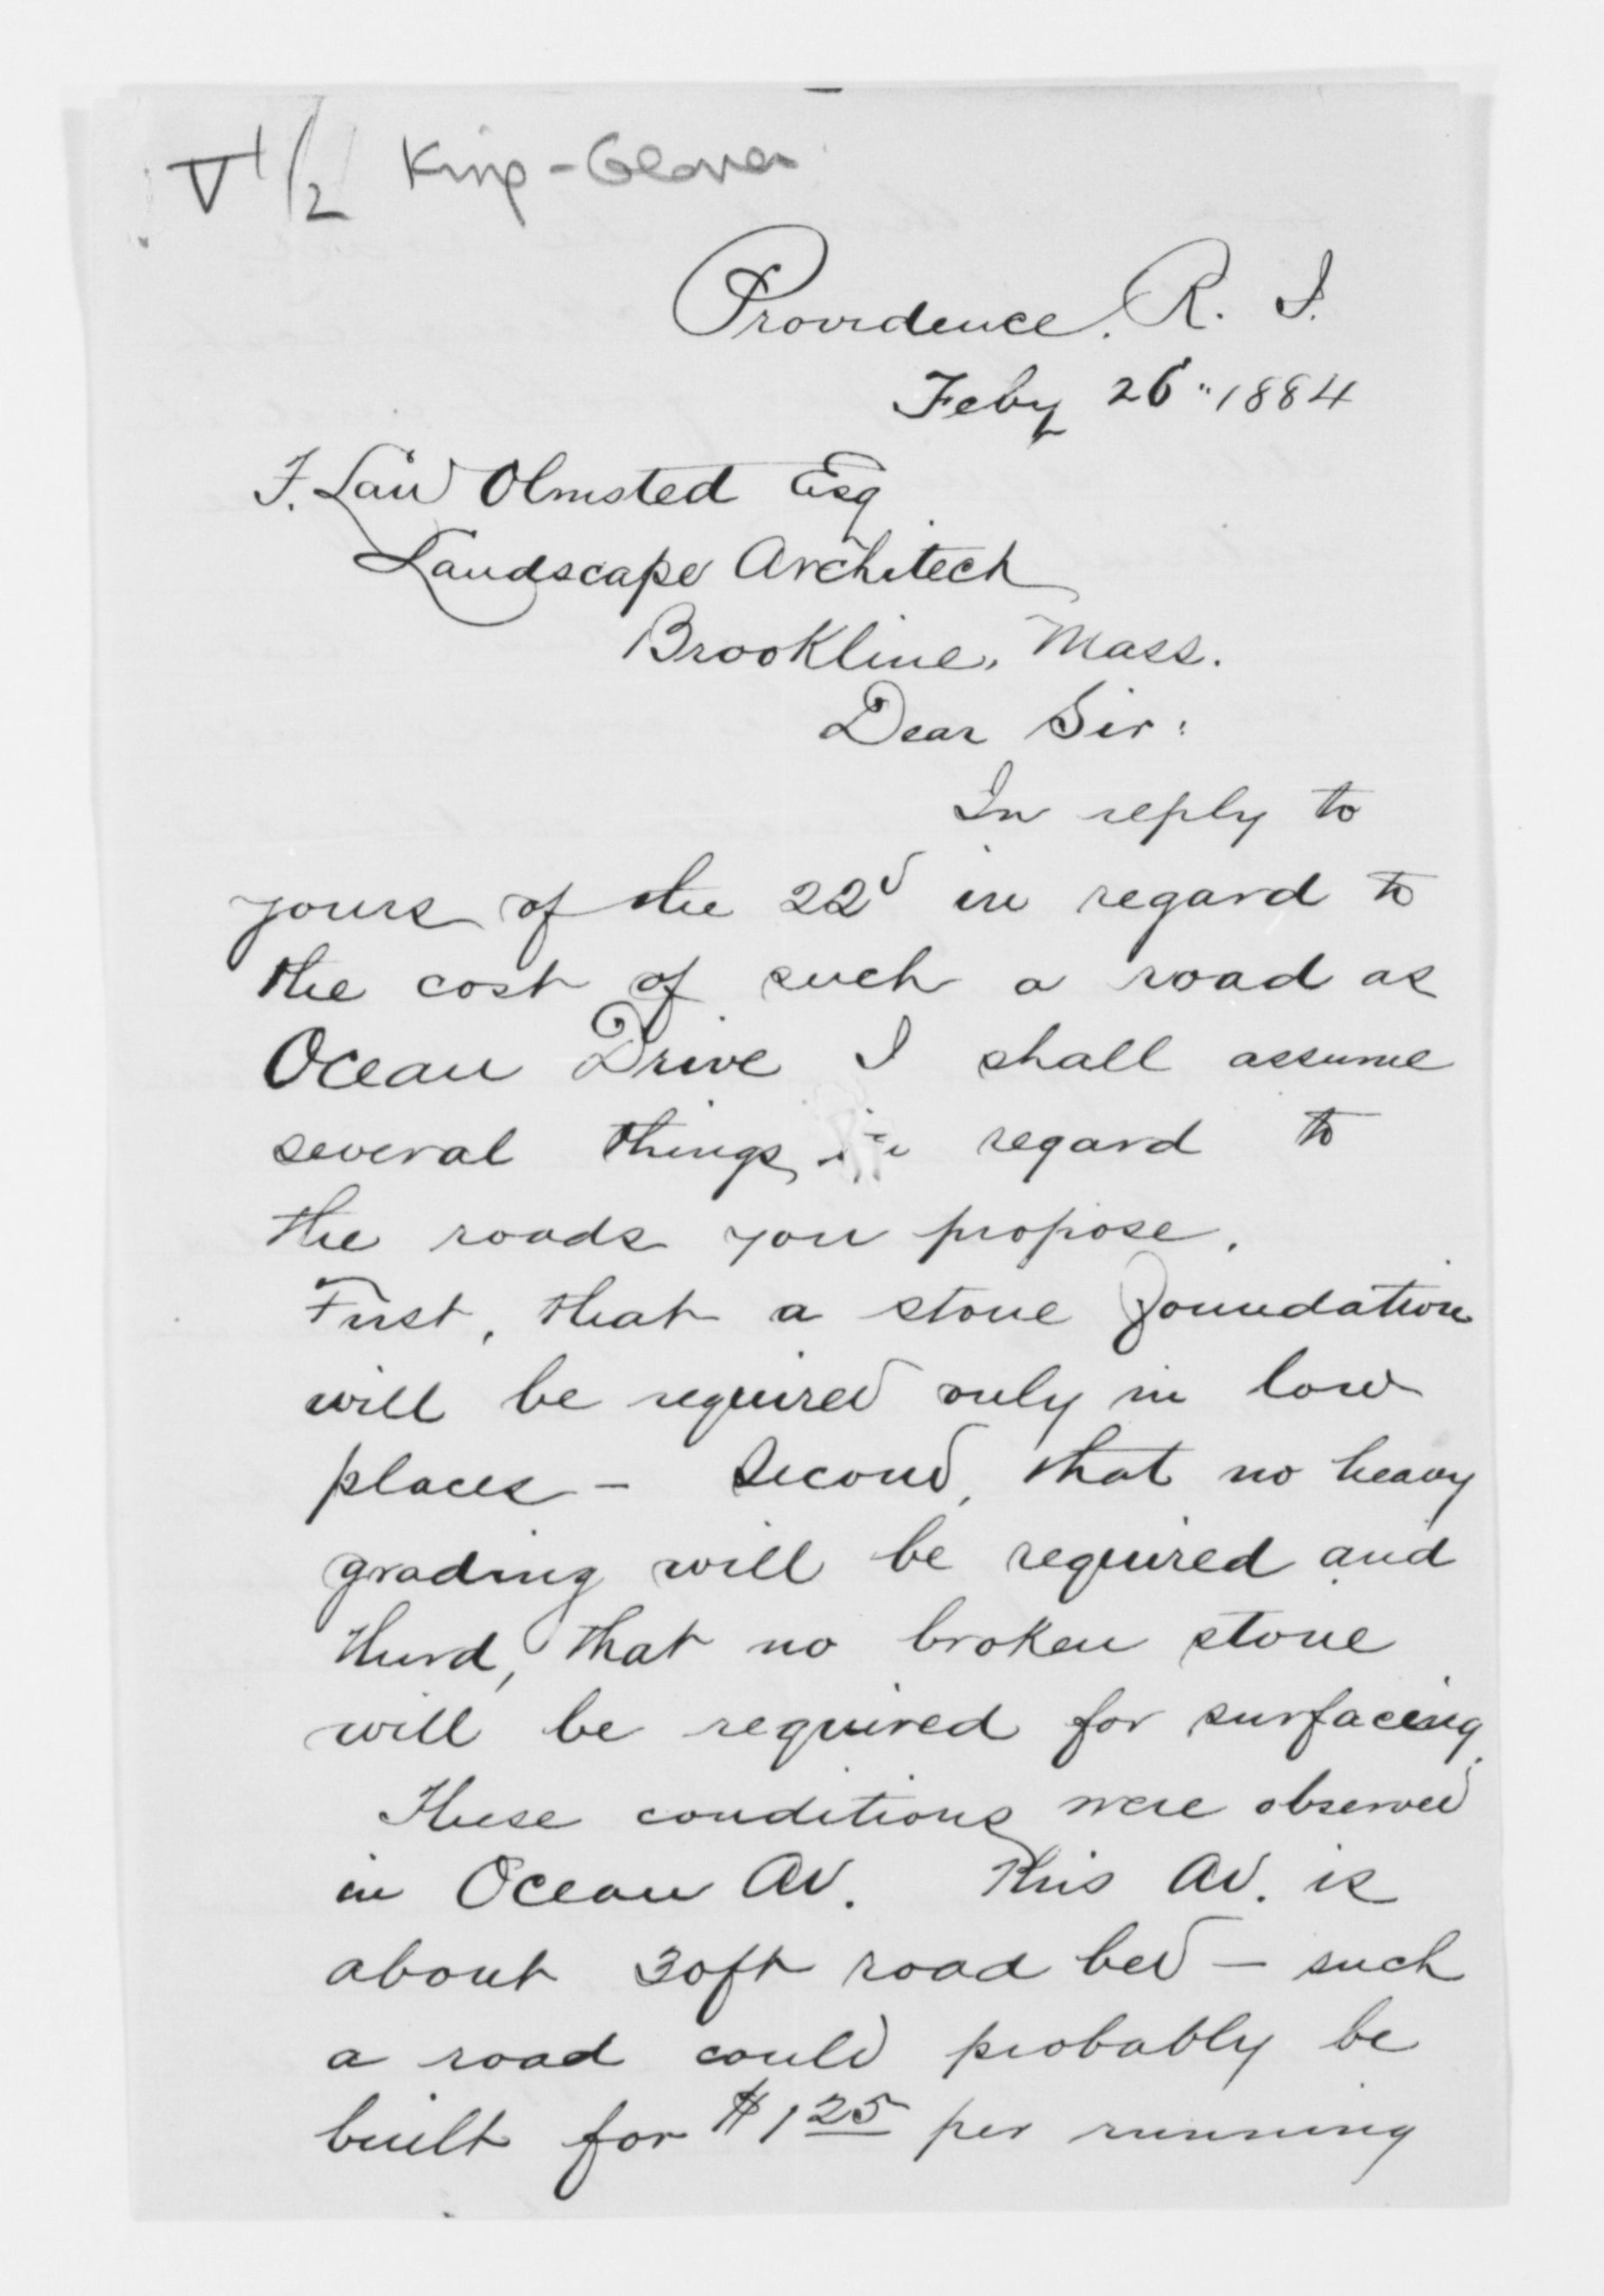 VI/2 King-Glover
Providence. R. I.
Feby 26" 1884
F. Law Olmsted Esq
Landscape Architech
Brookline, Mass.
Dear Sir:
In reply to
yours of the 22d in regard to
the cost of such a road as
Ocean Drive I shall assume
several things in regard to
the roads you propose.
First, that a stone foundation
will be required only in low
places - Second, that no heavy
grading will be required and
third, that no broken stone
will be required for surfacing.
These conditions were observed
in Ocean Av. This Av. is
about 30ft road bed - such
a road could probably be
built for $1 25 per running